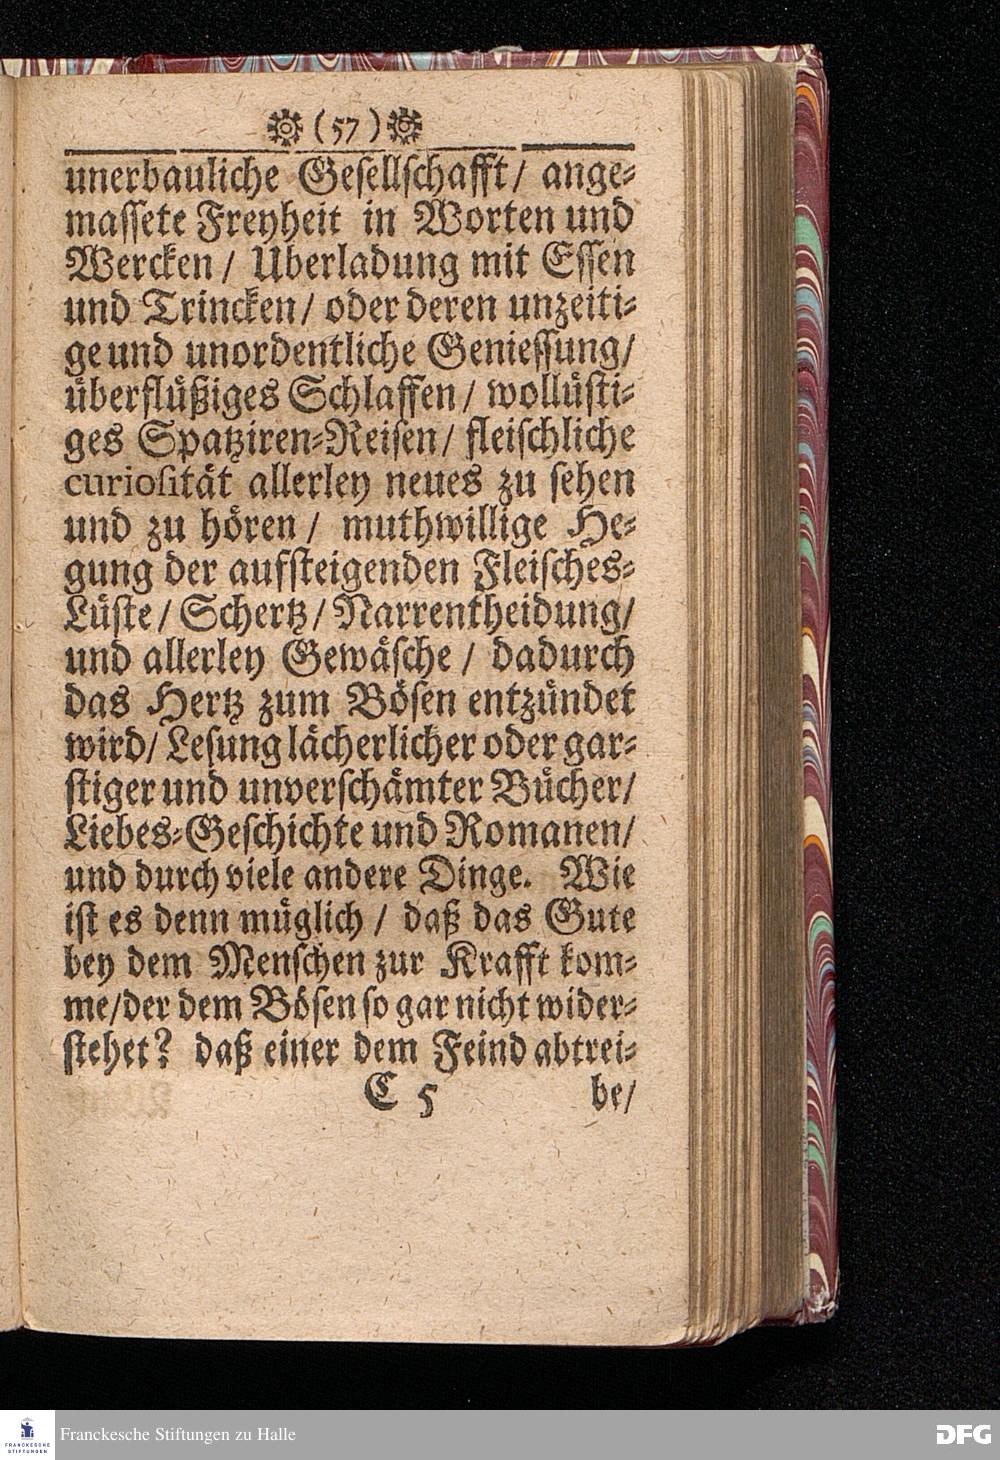 (57)
unerbauliche Gesellschafft/ ange-
massete Freyheit in Worten und
Wercken/ Uberladung mit Essen
und Trincken/ oder deren unzeiti-
ge und unordentliche Geniessung/
überflüßiges Schlaffen/ wollüsti-
ges Spatziren-Reisen/ fleischliche
curiosität allerley neues zu sehen
und zu hören/ muthwillige He-
gung der aufsteigenden Fleisches-
Lüste/ Schertz/ Narrentheidung/
und allerley Gewäsche/ dadurch
das Hertz zum Bösen entzündet
wird/ Lesung lächerlicher oder gar-
stiger und unverschämter Bücher/
Liebes-Geschichte und Romanen/
und durch viele andere Dinge. Wie
ist es denn müglich/ daß das Gute
bey dem Menschen zur Krafft kom-
me/der dem Bösen so gar nicht wider-
stehet? daß einer dem Feind abtrei-
C 5 be/
FRANCKESCHE STIFTUNGEN
Franckesche Stiftungen zu Halle
DFG